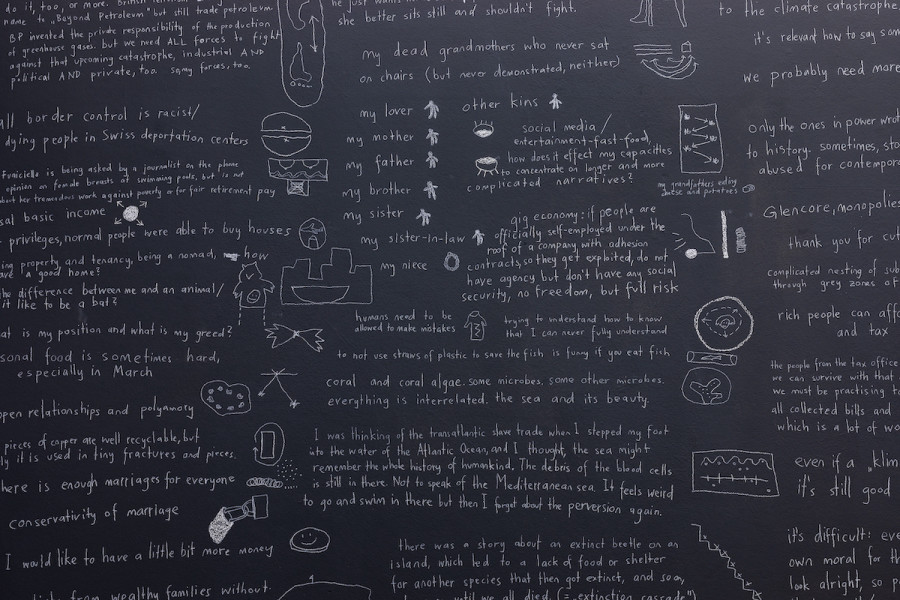 do it, too, or more. British
name to "Beyond Petroleum" but still trade petroleum
BP invented the private responsibility of the production
of greenhouse gases. but we need ALL forces to fight
against that upcoming catastrophe, industrial AND
political AND private, too. same forces, too.
all border control is racist/
dying people in Swiss deportation centers
Funiciello is being asked by a journalist on the phone
opinion on female breasts at swimming pools, but is not
about her tremendous work against poverty or for fair retirement pay
sal basic income
privileges, normal people were able to buy houses
ing property and tenancy, being a nomad, how
have a good home?
the difference between me and an animal/
it like to be a bat?
at is my position and what is my greed?
sonal food is sometimes hard,
especially in March
open relationships and polyamory
pieces of copper are well recyclable, but
ly it is used in tiny fractures and pieces.
here is enough marriages for everyone
conservativity of marriage
I would like to have a little bit more money
from wealthy families without
she better sits still and shouldn't fight.
my dead grandmothers who never sat
on chairs (but never demonstrated, neither)
my lover
my mother
my father
my brother
my sister
my sister-in-law
my niece
other kins
social media/
entertainment-fast-food,
how does it effect my capacities
to concentrate on longer and more
complicated narratives?
gig economy: if people are
officially self-employed under the
roof of a company with adhesion
contracts, so they get exploited, do not
have agency but don't have any social
security, no freedom, but full risk
humans need to be
allowed to make mistakes
trying to understand how to know
that I can never fully understand
to not use straws of plastic to save the fish is funny if you eat fish
coral and coral algae. some microbes. some other microbes.
everything is interrelated. the sea and its beauty.
I was thinking of the transatlantic slave trade when I stepped my foot
into the water of the Atlantic Ocean, and I thought, the sea might
remember the whole history of humankind. The debris of the blood cells
is still in there. Not to speak of the Mediterranean sea. It feels weird
to go and swim in there but then I forget about the perversion again.
there was a story about an extinct beetle on an
island, which led to a lack of food or shelter
for another species that then got extinct, and so on,
until we all died. (= "extinction cascade")
my grandfathers eating
cheese and potatoes
to the climate catastrophe,
it's relevant how to say som
we probably need more
only the ones in power wrot
to history. sometimes, sto
abused for contempora
Glencore, monopolies
thank you for cut
complicated nesting of sub
through grey zones of
rich people can affo
and tax
the people from the tax office
we can survive with that
we must be practising to
all collected bills and
which is a lot of wo
even if a "klim
it's still good
it's difficult: eve
own moral for th
look alright, so p